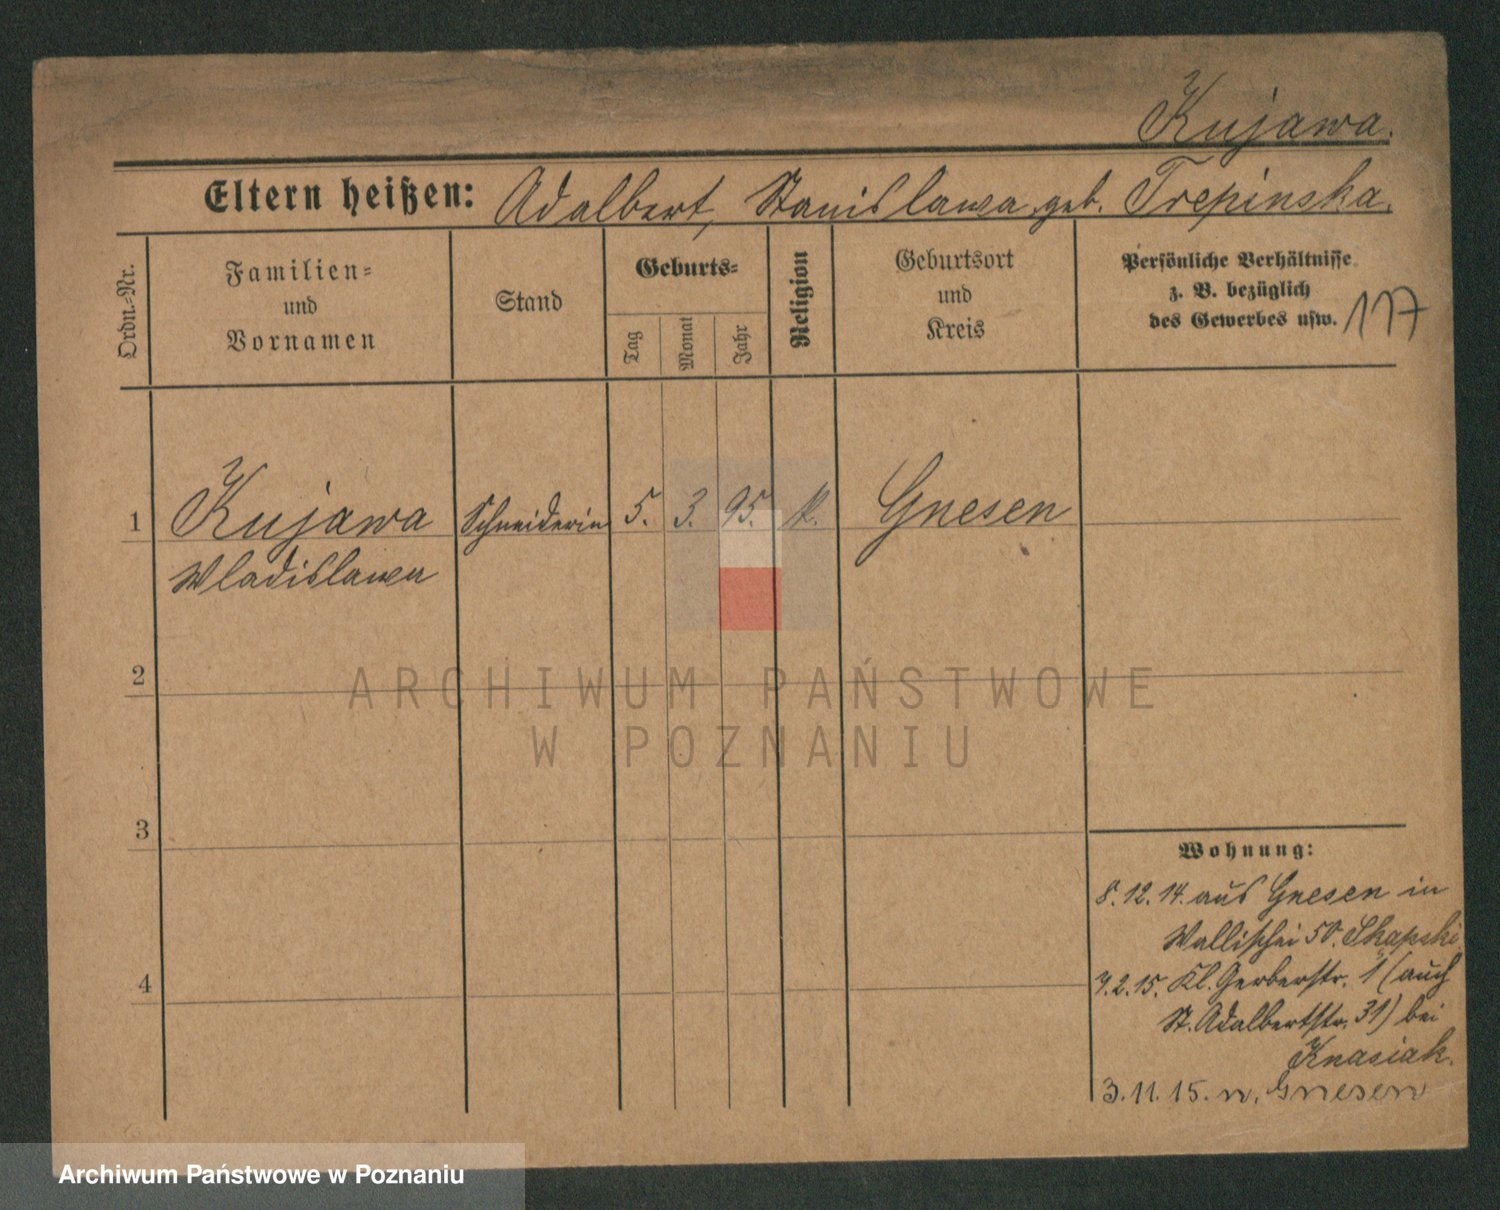 Kujawa.
Eltern heißen: Adalbert, Stanislawa geb. Trepinska.
Ordn.-Nr.
Familien-
und
Vornamen
Stand
Geburts-
Tag
Monat
Jahr
Religion
Geburtsort
und
Kreis
Persönliche Verhältnisse
z. B. bezüglich
des Gewerbes usw.
117
1 Kujawa Schneiderin 5. 3. 95. k. Gnesen
Wladislawa
2
ARCHIWUM PAŃSTWOWE
W POZNANIU
3
Wohnung:
8. 12. 14. aus Gnesen in
Wallischei 50. Skapski
4
7. 2. 15. Kl. Gerberstr. 1 (auch
St. Adalbertstr. 31) bei
Knasiak.
3. 11. 15. n. Gnesen
Archiwum Państwowe w Poznaniu